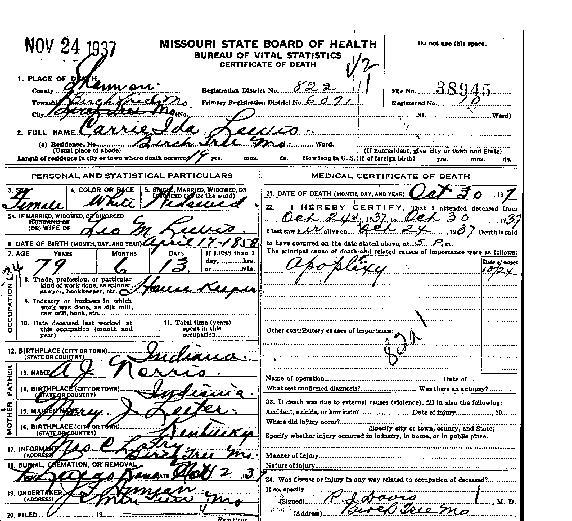 NOV 24 1937
MISSOURI STATE BOARD OF HEALTH
BUREAU OF VITAL STATISTICS
CERTIFICATE OF DEATH
Do not use this space.
1. PLACE OF DEATH
County Shannon
Registration District No. 822
File No. 38945
Township
Primary Registration District No. 6071
Registered No. 10
City
No.
Ward)
2. FULL NAME Carrie Ida Lewis
(a) Residence. No. Birch Tree Mo Ward.
(Usual place of abode)
(If nonresident, give city or town and State)
Length of residence in city or town where death occurred 19 yrs. mos. ds. How long in U.S. (if of foreign birth)? yrs. mos. ds.
PERSONAL AND STATISTICAL PARTICULARS
3. SEX
Female
4. COLOR OR RACE
White
5. SINGLE, MARRIED, WIDOWED, OR
Widowed
5A. IF MARRIED, WIDOWED, OR DIVORCED
HUSBAND OF
(OR) WIFE OF Geo M Lewis
6. DATE OF BIRTH (MONTH, DAY, AND YEAR) April 17-1858
7. AGE YEARS MONTHS DAYS If LESS than 1
79 6 13
OCCUPATION
8. Trade, profession, or particular
kind of work done, as spinner,
sawyer, bookkeeper, etc. House Keeper
9. Industry or business in which
work was done, as silk mill,
saw mill, bank, etc.
10. Date deceased last worked at
this occupation (month and
year)
11. Total time (years)
spent in this
occupation
12. BIRTHPLACE (CITY OR TOWN) Indiana
(STATE OR COUNTRY)
FATHER
13. NAME A J Norris
14. BIRTHPLACE (CITY OR TOWN) Indiana
(STATE OR COUNTRY)
MOTHER
15. MAIDEN NAME Mary J Leeter
16. BIRTHPLACE (CITY OR TOWN) Kentucky
(STATE OR COUNTRY)
17. INFORMANT Mrs. C
(ADDRESS) Birch Tree Mo
18. BURIAL, CREMATION, OR REMOVAL
Nov 2 37
19. UNDERTAKER
(ADDRESS) Mo
20. FILED
MEDICAL CERTIFICATE OF DEATH
21. DATE OF DEATH (MONTH, DAY, AND YEAR) Oct 30 1937
22. I HEREBY CERTIFY, That I attended deceased from
Oct 24, 1937 to Oct 30, 1937
I last saw alive on Oct 24 1937 Death is said
to have occurred on the date stated above, at 5 P.m.
The principal cause of death and related causes of importance were as follows:
Date of onset
Apoplixy
82a1
Other contributory causes of importance:
Name of operation Date of
What test confirmed diagnosis? Was there an autopsy?
23. If death was due to external causes (violence), fill in also the following:
Accident, suicide, or homicide? Date of injury 19
Where did injury occur?
(Specify city or town, county, and State)
Specify whether injury occurred in industry, in home, or in public place.
Manner of injury
Nature of injury
24. Was disease or injury in any way related to occupation of deceased?
If so, specify
(Signed) R J Davis M. D.
(Address) Birch Tree Mo